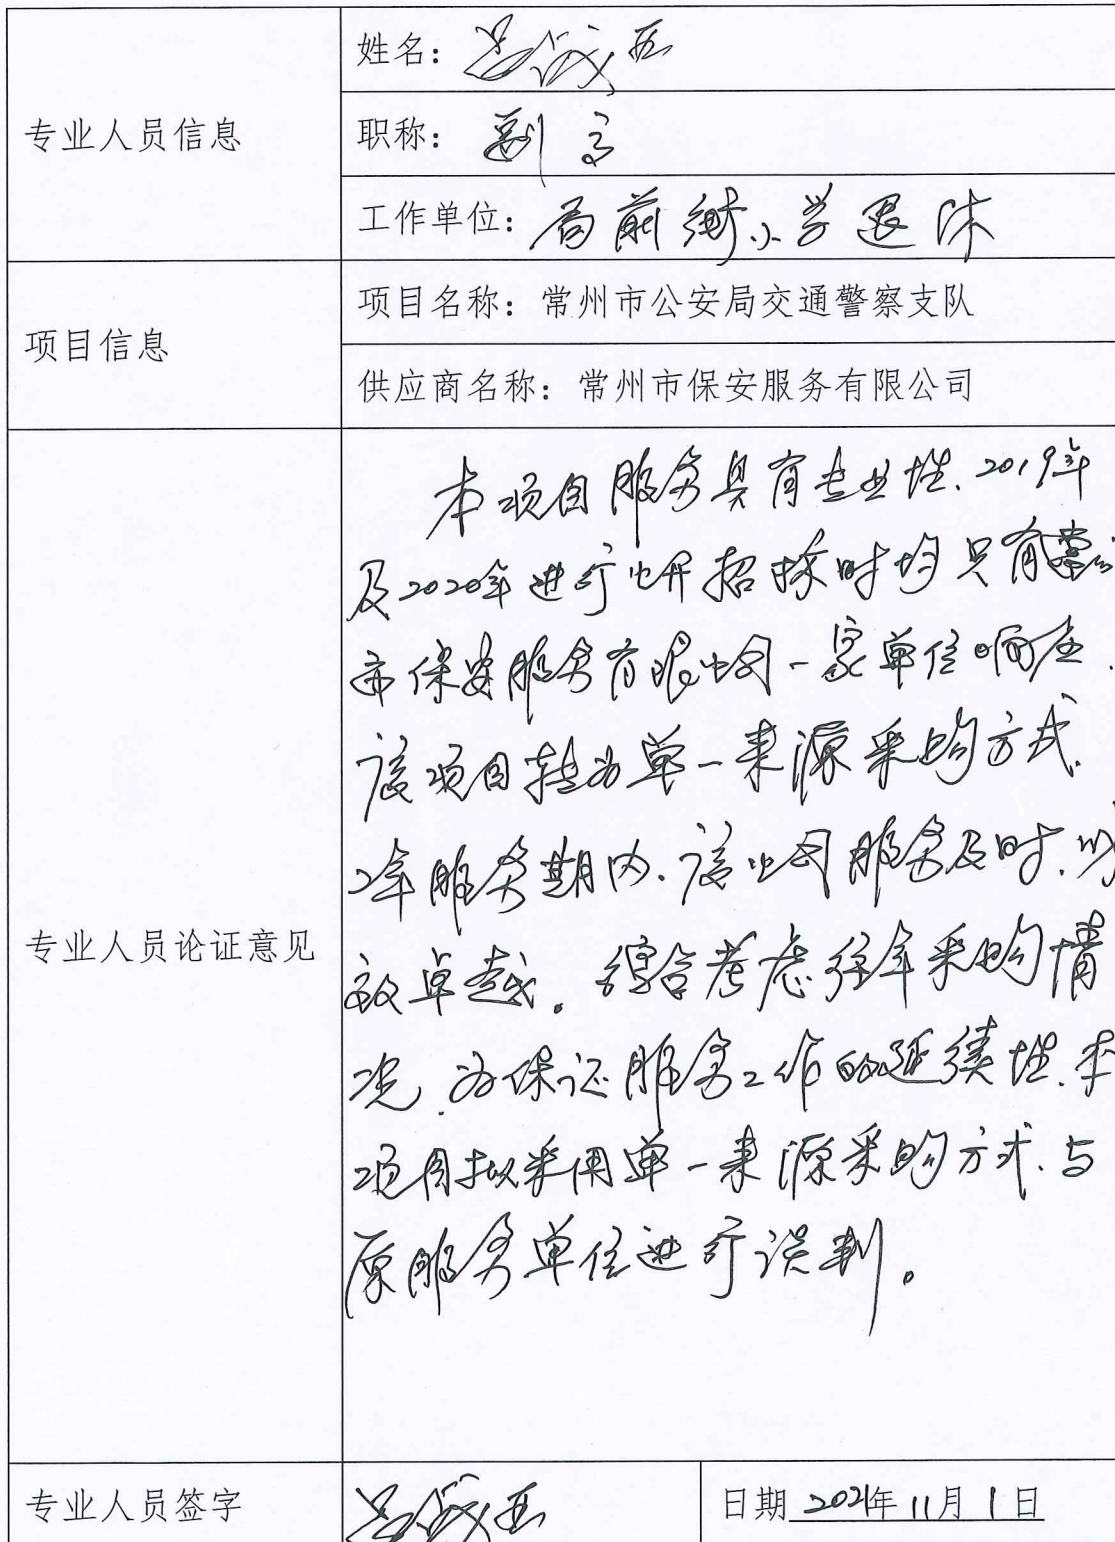 专业人员信息
姓名：
职称：副高
工作单位：局前街小学退休
项目信息
项目名称：常州市公安局交通警察支队
供应商名称：常州市保安服务有限公司
专业人员论证意见
本项目服务具有专业性，2019年
及2020年进行公开招标时均只有常州
市保安服务有限公司一家单位响应，
该项目转为单一来源采购方式，
2年服务期内，该公司服务及时，
效卓越。综合考虑往年采购情
况，为保证服务工作的延续性，本
项目拟采用单一来源采购方式，与
原服务单位进行谈判。
专业人员签字
日期 2021年11月1日